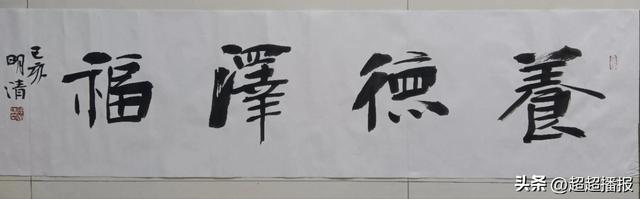 養德澤福
己亥
明清
头条 @超超播报